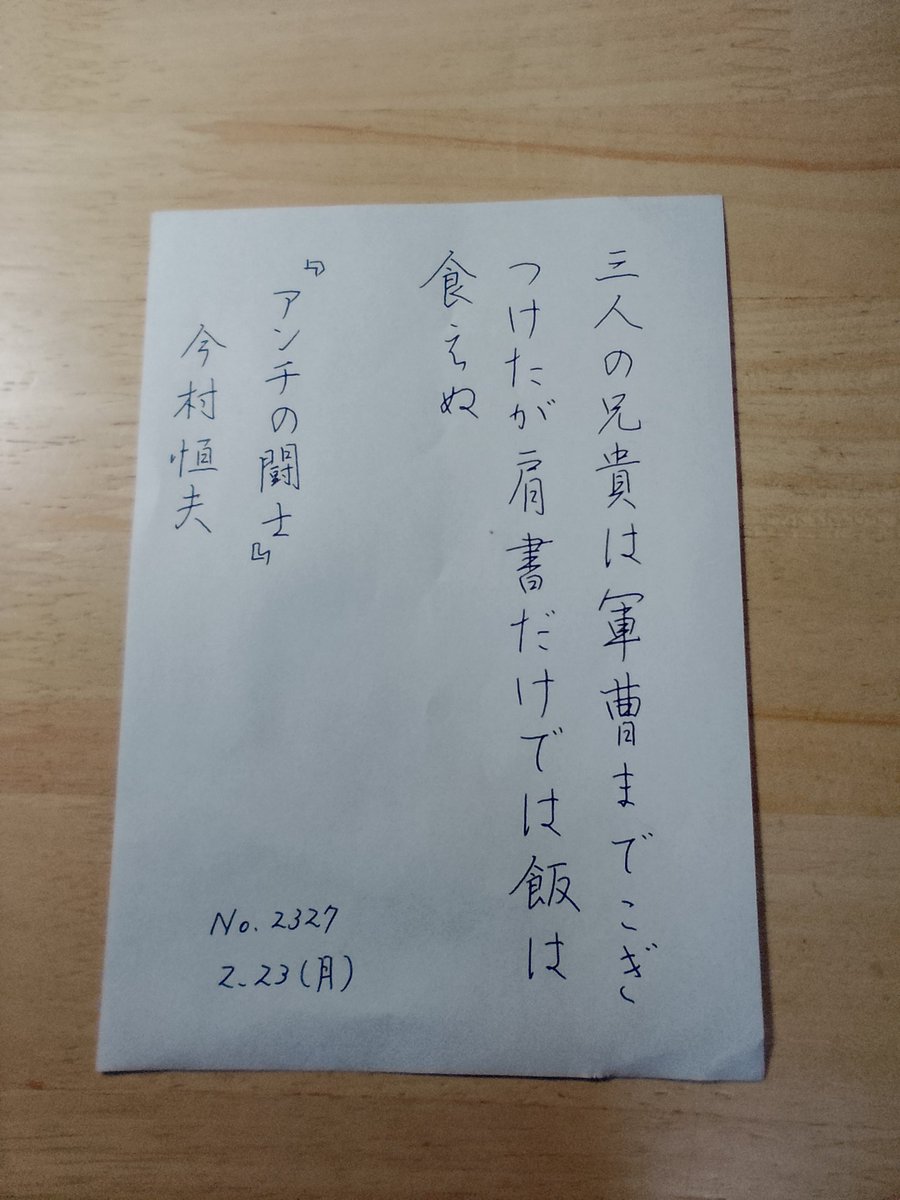 三人の兄貴は軍曹までこぎ
つけたが肩書だけでは飯は
食えぬ
『アンチの闘士』
今村恒夫
No.2327
2.23(月)